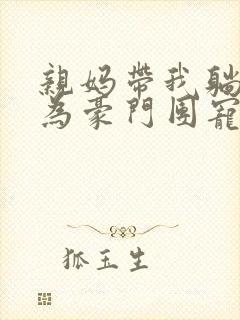 親媽帶我躺
為豪門團寵
狐玉生